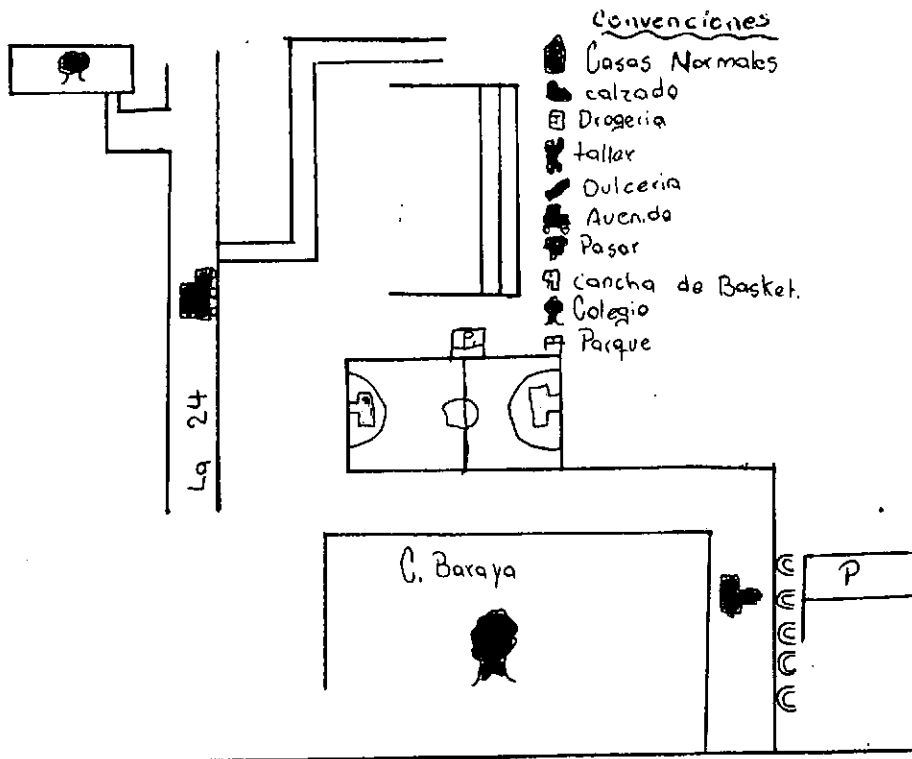 Convenciones
Casas Normales
calzado
Drogeria
taller
Dulceria
Avenida
Pasar
cancha de Basket.
Colegio
Parque
P.
La 24
C. Baraya
P